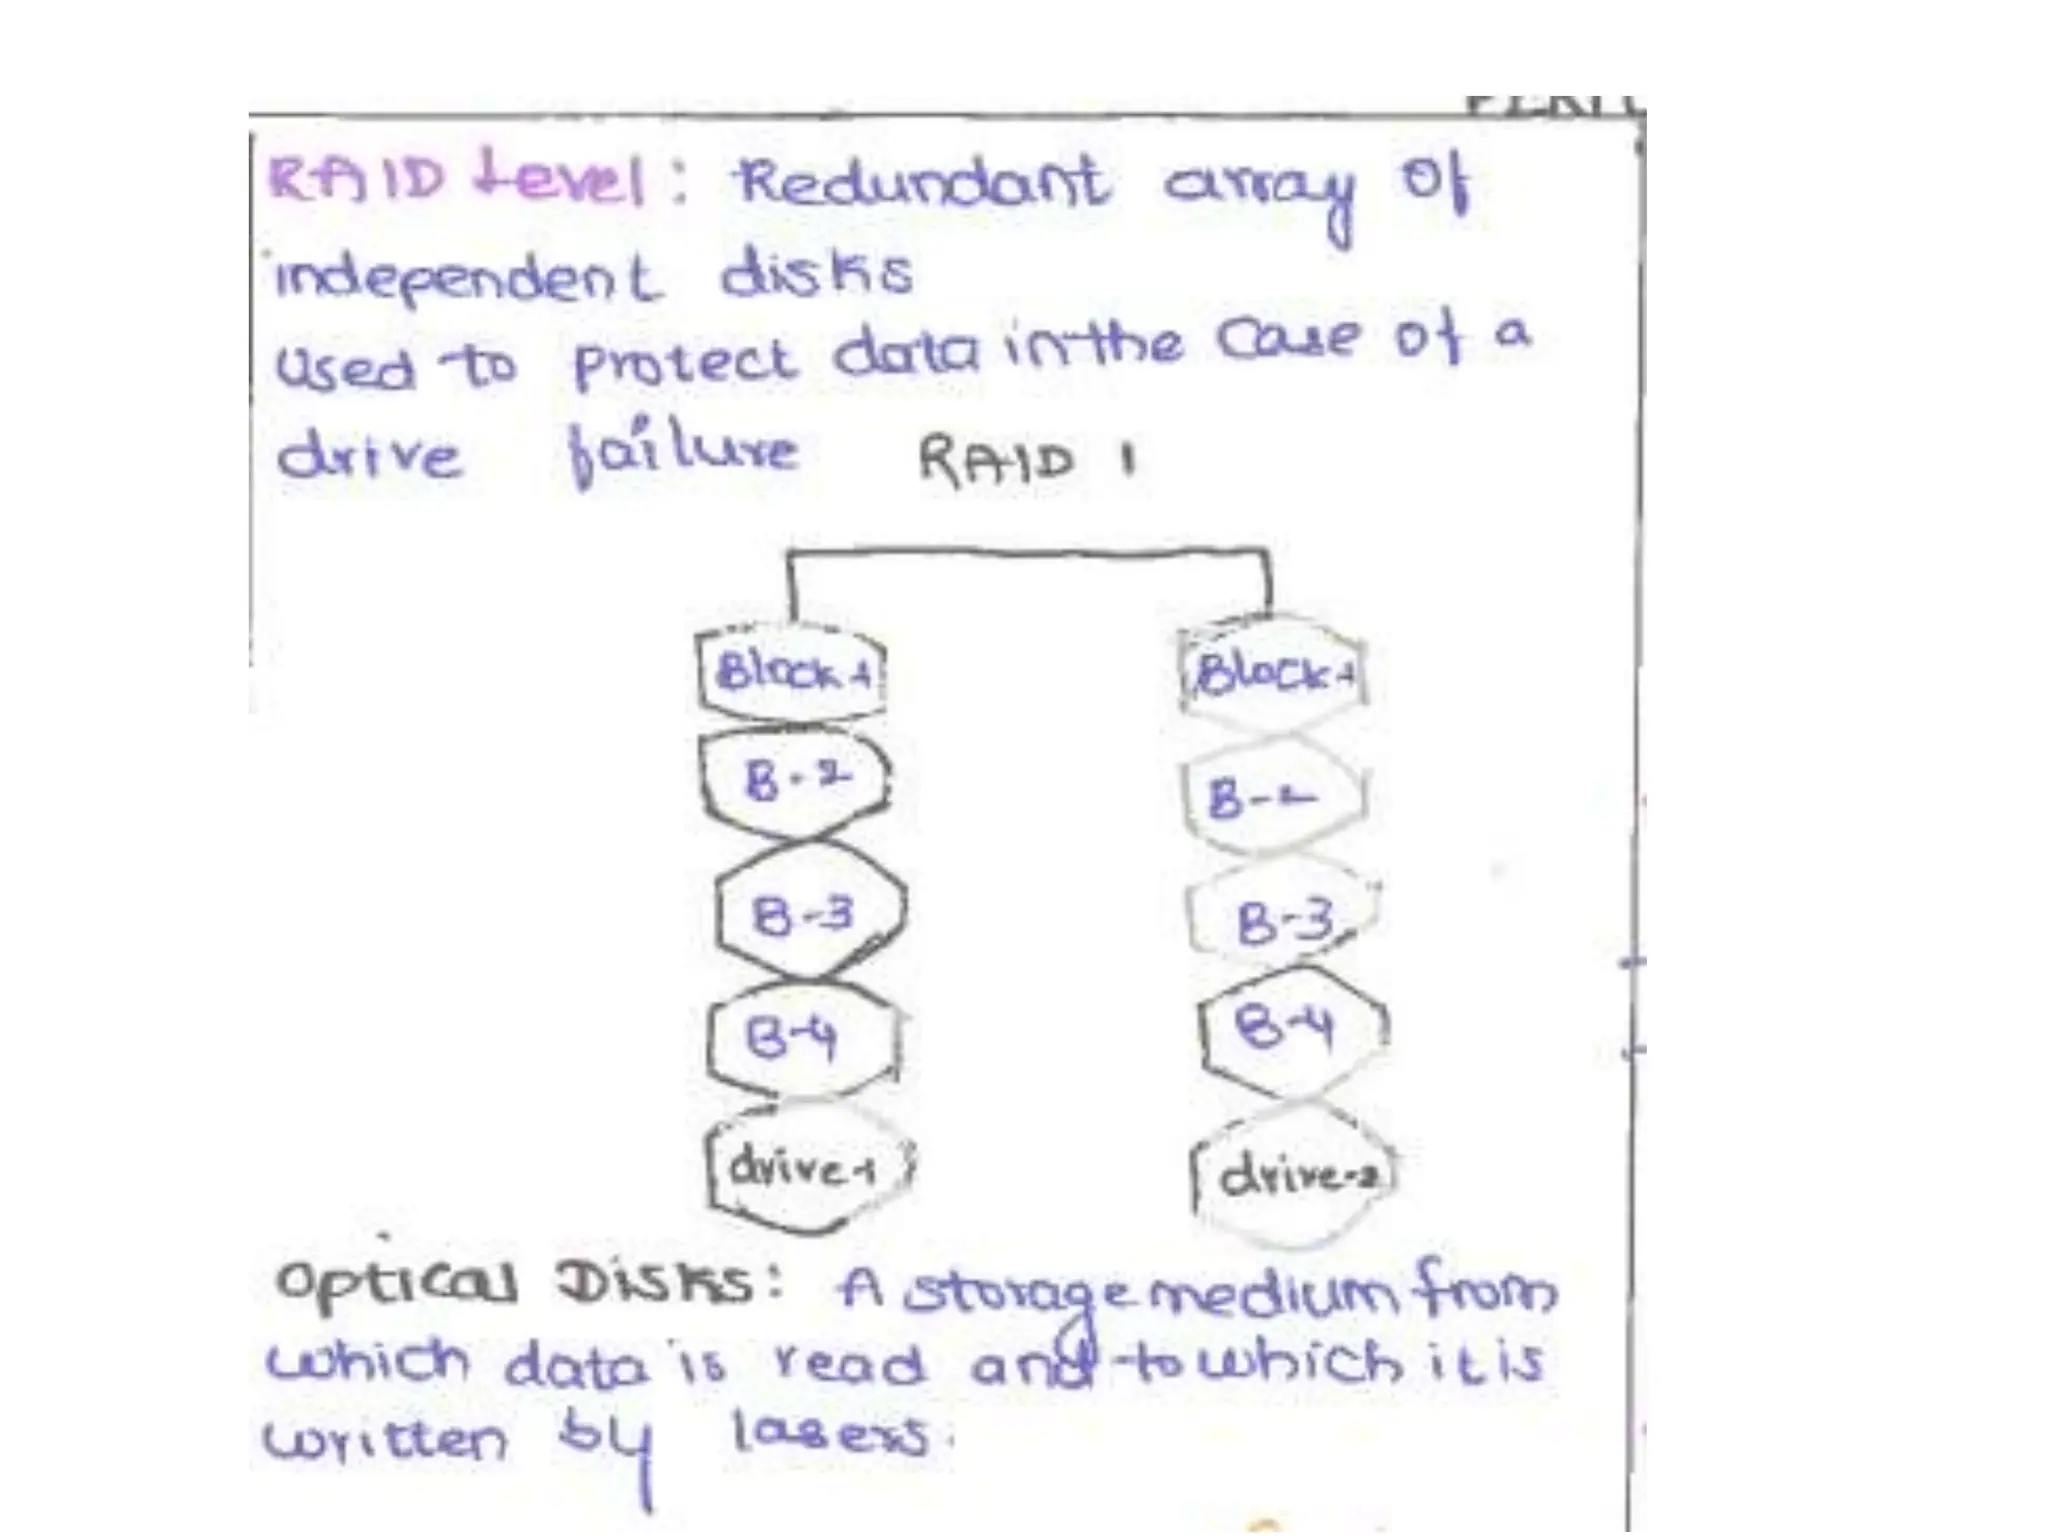 RAID Level: Redundant array of
independent disks
Used to protect data in the case of a
drive failure RAID 1
Block-1 Block-1
B-2 B-2
B-3 B-3
B-4 B-4
drive-1 drive-2
Optical Disks: A storage medium from
which data is read and to which it is
written by lasers.